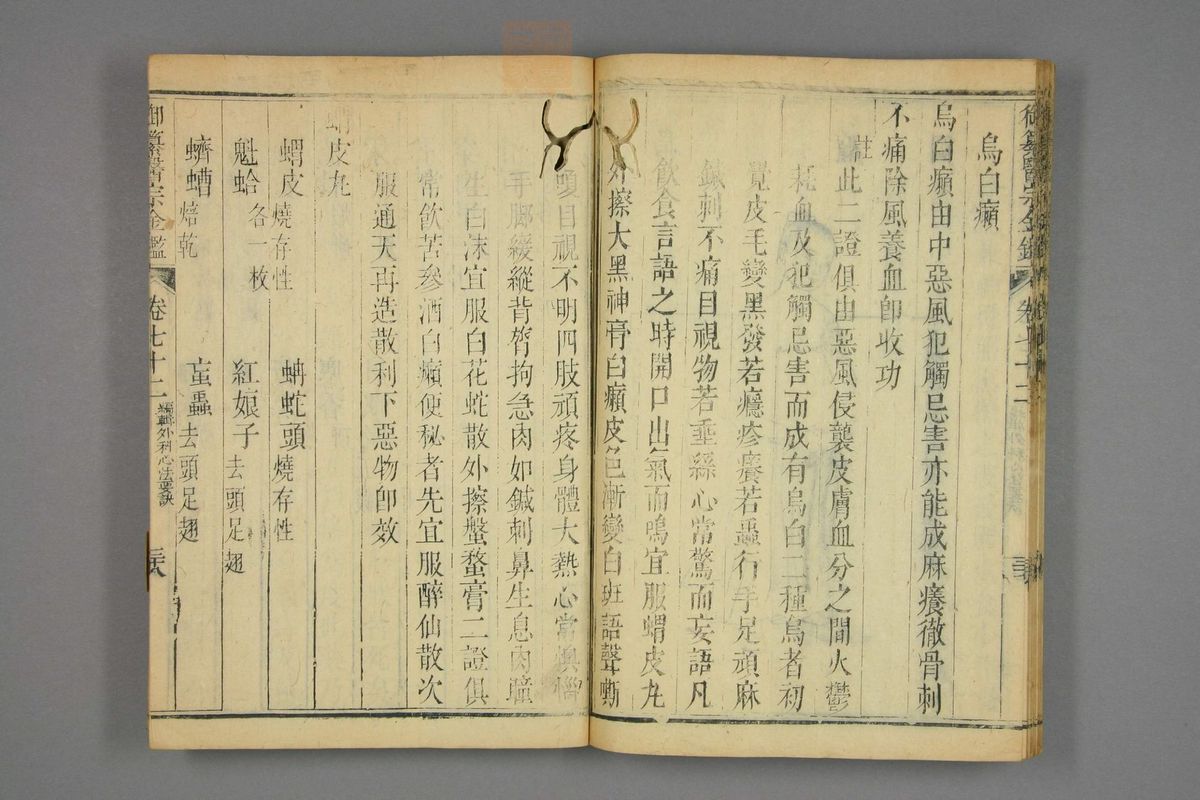 烏白癩
烏白癩由中惡風犯觸忌害亦能成麻癢徹骨刺
不痛除風養血卽收功
註此二證俱由惡風侵襲皮膚血分之間火鬱
耗血及犯觸忌害而成有烏白二種烏者初
覺皮毛變黑發若癮疹癢若蟲行手足頑麻
鍼刺不痛目視物若垂絲心常驚而妄語凡
飮食言語之時開口出氣而鳴宜服蝟皮丸
外擦大黑神膏白癩皮色漸變白斑語聲嘶
嗄目視不明四肢頑疼身體大熱心常懊憹
手腳緩縱背膂拘急肉如鍼刺鼻生息肉瞳
生白沫宜服白花蛇散外擦斑蝥膏二證俱
常飮苦參酒白癩便秘者先宜服醉仙散次
服通天再造散利下惡物卽效
蝟皮丸
蝟皮燒存性　蚺蛇頭燒存性
魁蛤各一枚　紅娘子去頭足翅
蠐螬焙乾　䖟蟲去頭足翅
御纂醫宗金鑑　卷七十二　編輯外科心法要訣